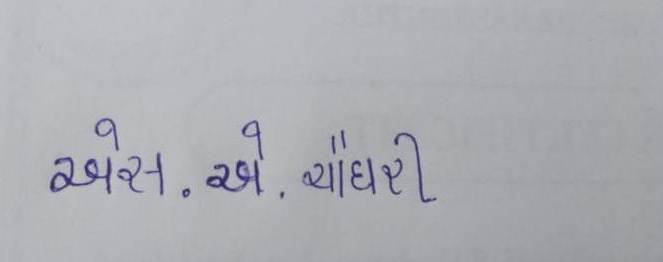 એસ. એ. ચૌધરી